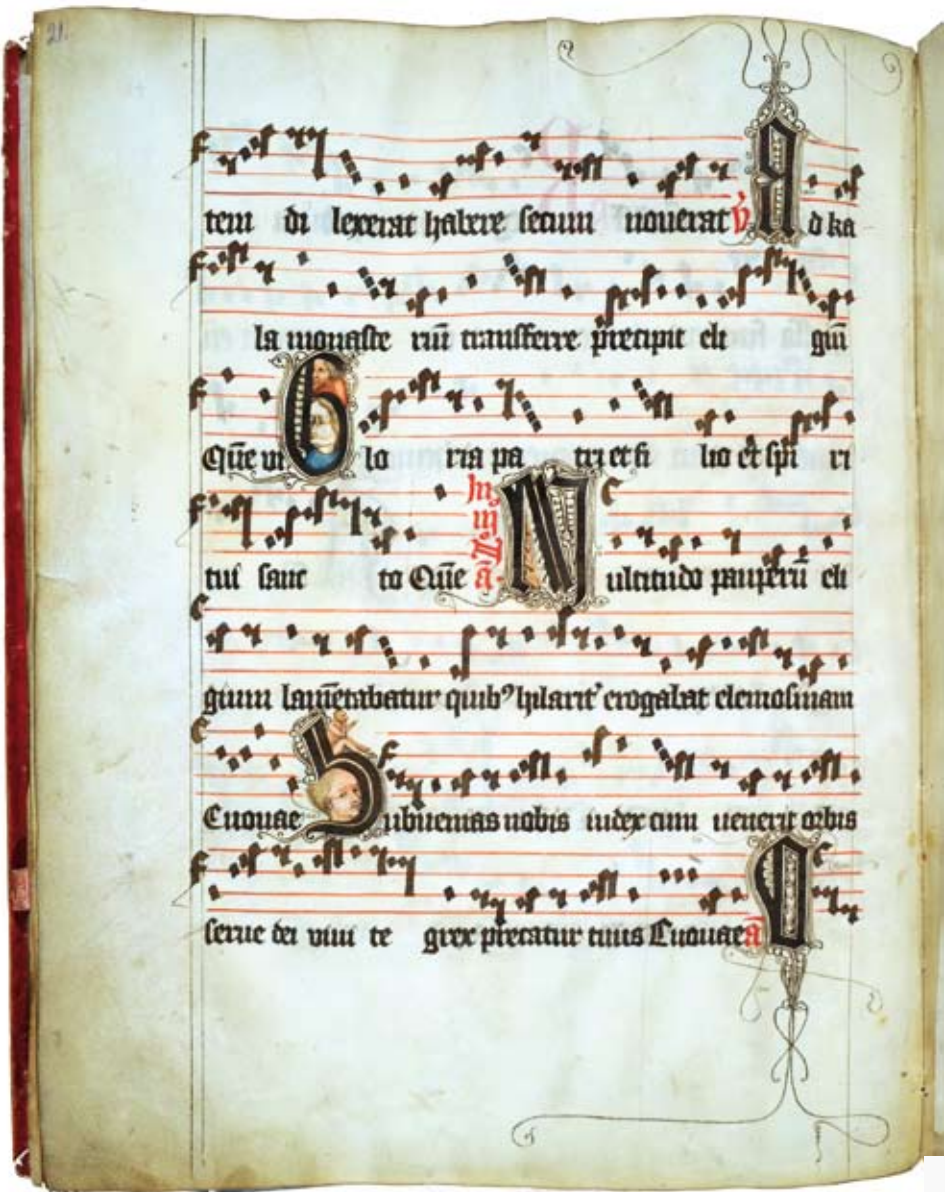 21.
tem di lexerat habere secum nouerat ℣ Ad ka
la monaste riū transferre precipit eli giū
Qūe vi Glo ria pa tri et fi lio et spi ri
tui sanc to Qūe In iii ā Multitudo pauperū eli
gium lamētabatur quibꝰ hilarit' erogabat elemosinam
Euouae Subuenias nobis iudex cum uenerit orbis
serue dei viui te grex precatur tuus Euouae ā